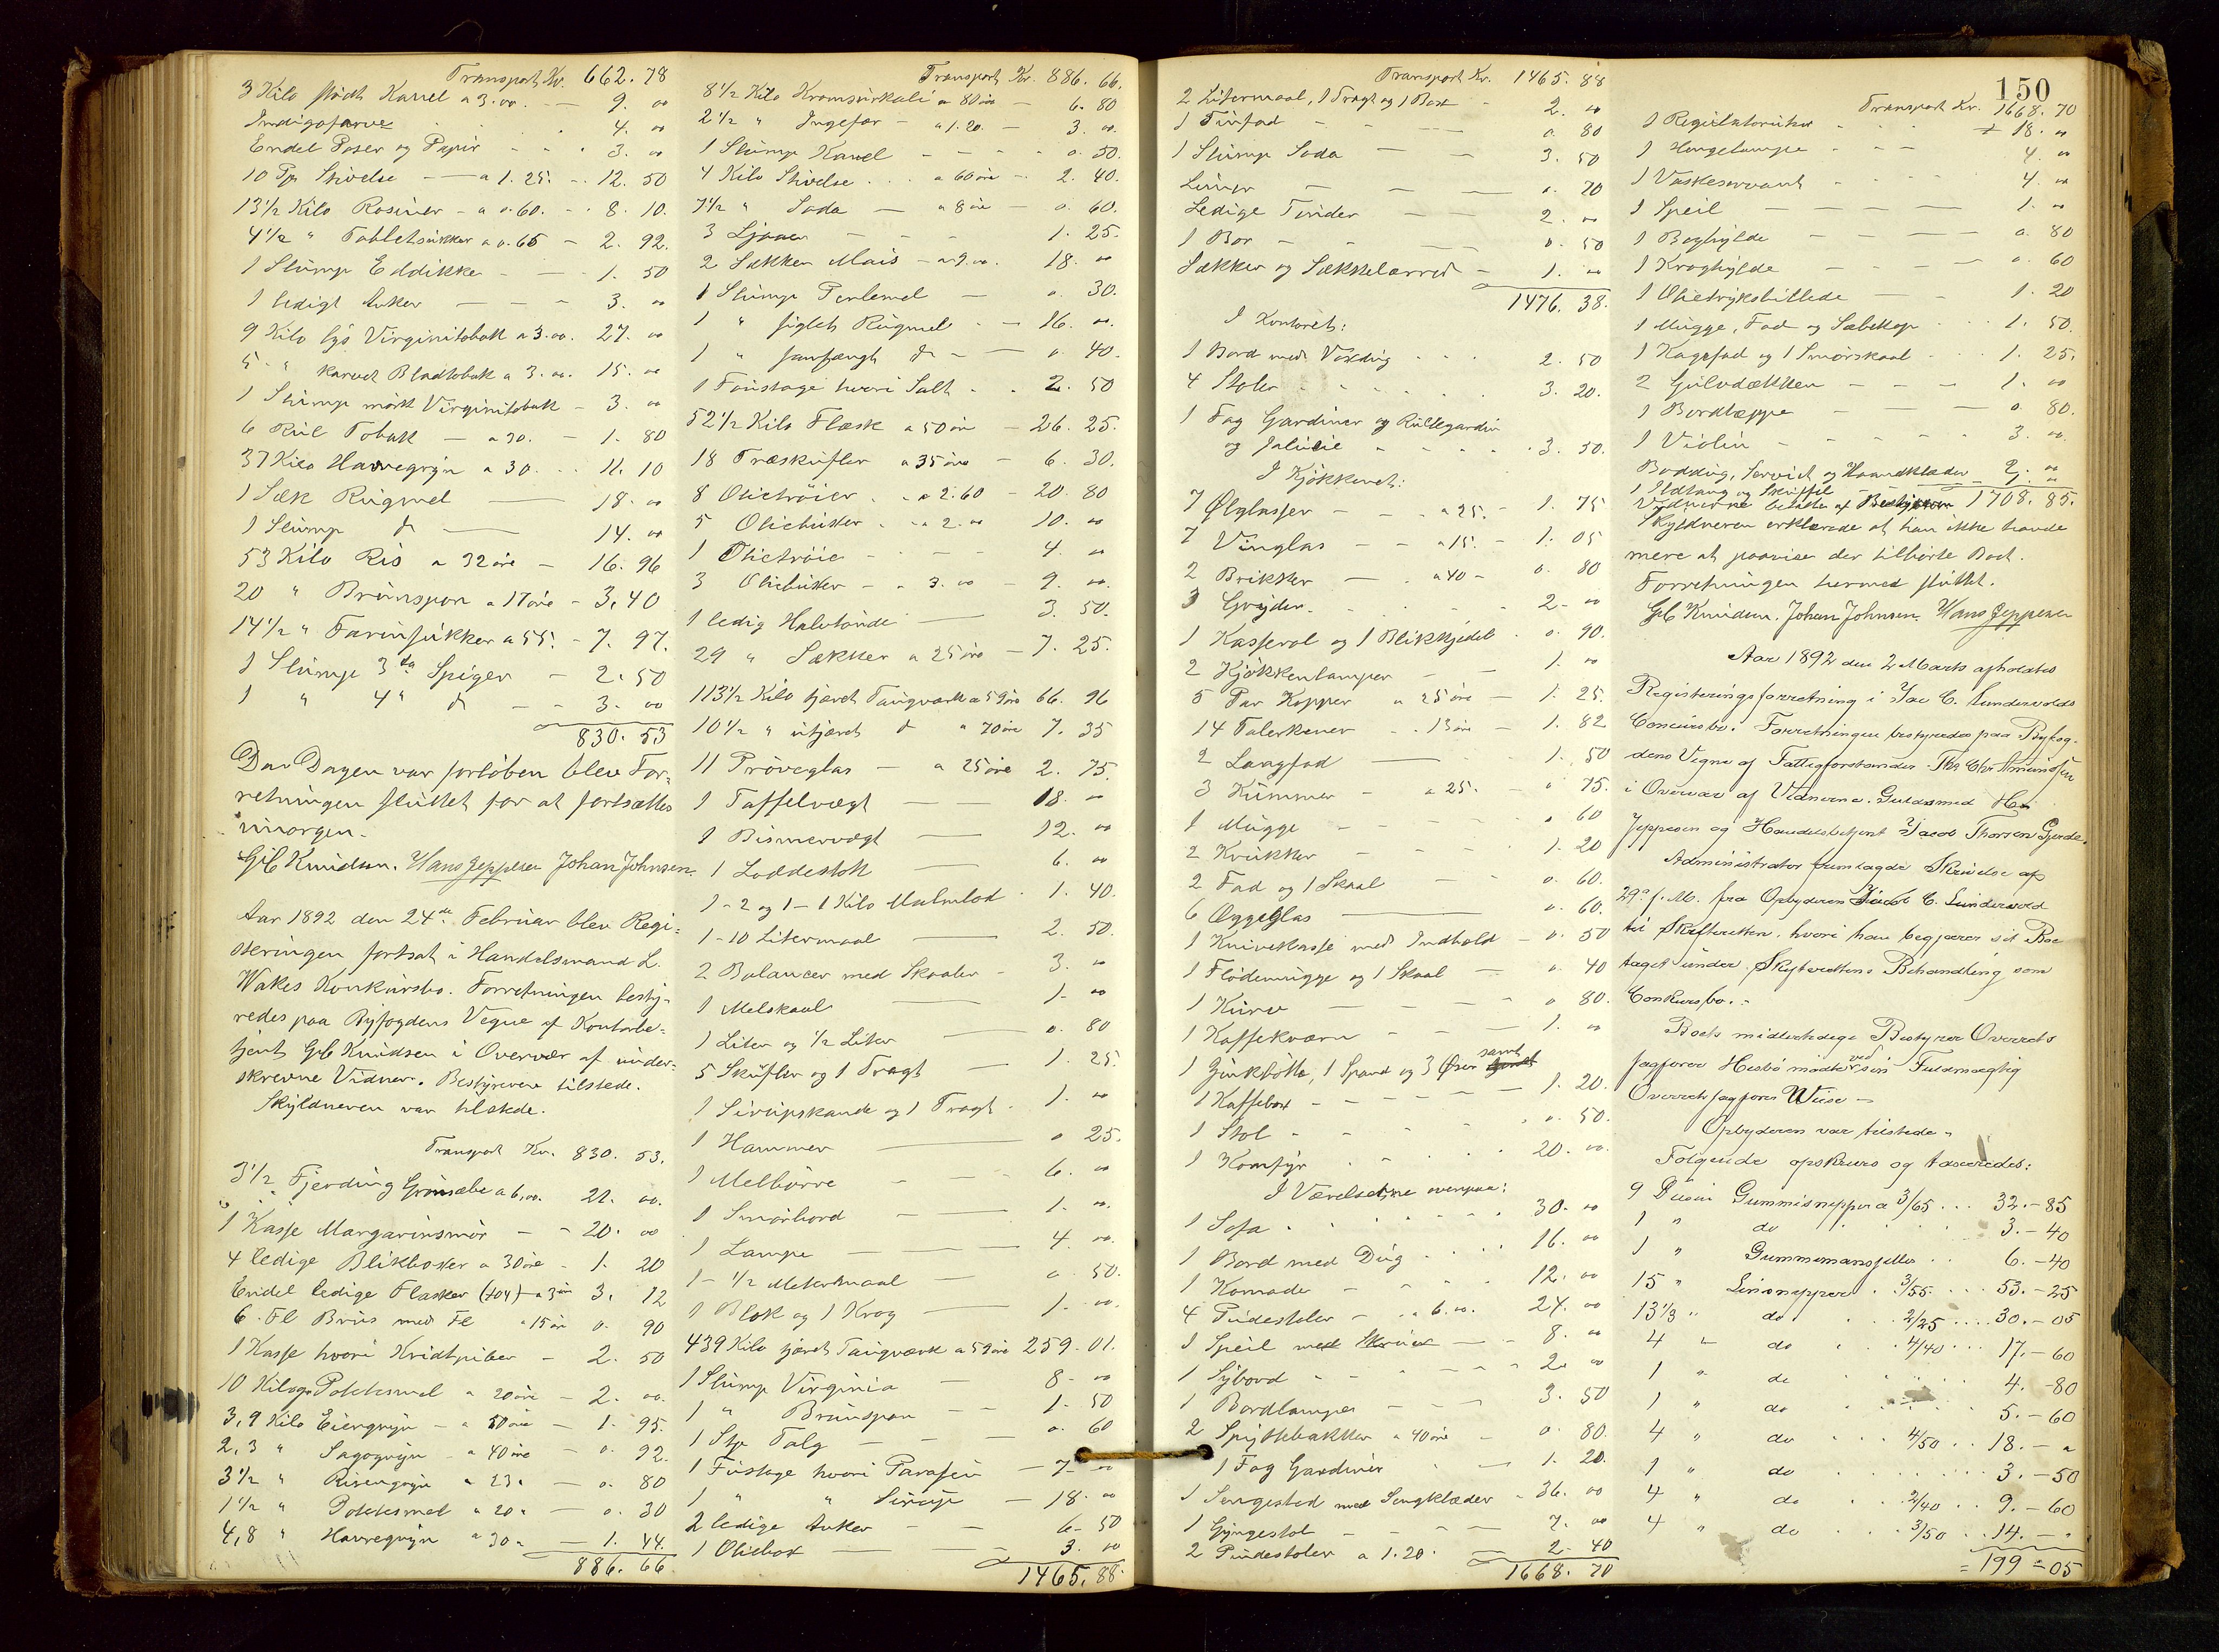 Transport Kr. 662. 78
3 Kilo stødt Kanel a 3.00. — 9. 00
Indigofarve 4. 00
Endel Poser og Papir - - - 3. 00
10 Pk Stivelse — a 1. 25. - 12. 50
13 1/2 Kilo Rosiner - a 0.60. - 8. 10.
4 1/2 " Tobletsukker a 0.65 - 2. 92.
1 Slump Eddikke - — 1. 50
1 ledigt Anker — - - 3. 00
9 Kilo lys Virginitobak a 3.00. 27. 00
5 - " karvet Bladtobak a 3.00. 15. 00
1 Slump mörk Virginitobak - 3. 00
6 Rul Tobak — a 30. - 1. 80
37 Kilo Havregryn a 30. - 11. 10
1 Sæk Rugmel — 18. 00
1 Slump do — 14. 00
53 Kilo Ris a 32 öre - 16. 96
20 " Brunspon a 17 öre - 3. 40
14 1/2 " Farinsukker a 55. - 7. 97.
1 Slump 3" Spiger - 2. 50
1 " 4" do - - 3. 00
830. 53
Da Dagen var forløben blev For-
retningen sluttet for at fortsættes
imorgen.
Gjb Knudsen. Hans Jeppesen Johan Johnsen.
Aar 1892 den 24de Februar blev Regi-
streringen fortsat i Handelsmand L.
Wakes Konkursbo. Forretningen besty-
redes paa Byfogdens Vegne af Kontorbe-
tjent Gjb Knudsen i Overvær af under-
skrevne Vidner. Bestyreren tilstede.
Skyldneren var tilstede.
Transport Kr. 830. 53.
3 1/2 Fjerding Grönsæbe a 6.00. 21. 00.
1 Kasse Margarinsmör - - 20. 00
4 ledige Blikbokser a 30 öre - 1. 20
Endel ledige Flasker (104) - a 3 öre 3. 12
6 Fl Brus med Fl a 15 öre 0. 90
1 Kasse hvori Kridtpiber - 2. 50
10 Kilogr Potetesmel a 20 öre - 2. 00.
3,9 Kilo Biergryn - a 50 öre - 1. 95.
2,3 " Sagogryn - a 40 öre - 0. 92.
3 1/2 " Risengryn a 23 " — 0. 80
1 1/2 " Potetesmel a 20 " — 0. 30
4,8 " Havregryn a 30 " — 1. 44.
886. 66
Transport Kr. 886. 66.
8 1/2 Kilo Kromsurkali a 80 öre - 6. 80
2 1/2 " Ingefær - a 1. 20. — 3. 00.
1 Slump Kanel - - - - 0. 50.
4 Kilo Stivelse . . . a 60 öre - 2. 40.
7 1/2 " Soda — a 8 öre — 0. 60.
3 Ljaaer — - - 1. 25.
2 Sækker Mais - a 9.00. 18. 00
1 Slump Perlemel — 0. 30.
1 " sigtet Rugmel - - 16. 00.
1 " do - — 0. 40.
1 Foustage hvori Salt . . 2. 50
52 1/2 Kilo Flæsk a 50 öre - 26. 25.
18 Træskufler a 35 öre - 6. 30.
8 Olietröier . . a 2. 60 - 20. 80
5 Oliebukser . . a 2. 00 10. 00
1 Olietröie - - - - 4. 00
3 Oliebukser - a 3. 00 - 9. 00.
1 ledig Halvtönde — 3. 50.
29 " Sækker a 25 öre - 7. 25.
113 1/2 Kilo tjæret Taugværk a 59 öre 66. 96
10 1/2 " utjæret do a 70 öre 7. 35
11 Pröveglas — a 25 öre 2. 75.
1 Taffelvægt — 18. 00
1 Bismervægt — 12. 00
1 Loddestok — 6. 00
1-2 og 1-1 Kilo Malmlod . 1. 40.
1-10 Litermaal — 2. 50.
2 Balancer med Skaaler - 3. 00
1 Melskaal — 1- 00
1 Liter og 1/2 Liter — 0. 80
5 Skufler og 1 Tragt — 1. 25.
1 Sirupskande og 1 Tragt . 1. 00
1 Hammer — 0 25.
1 Melbörre - - 6. 00
1 Smörbord — 1. 00.
1 Lampe — 4. 00.
1-1/2 Metermaal — 0. 50.
1 Blok og 1 Krog — 1. 00.
439 Kilo tjæret Taugværk a 59 öre 259. 01.
1 Slump Virginia — 8- 00
1 " Brunspon — 1- 50
1 Stp Talg — 0. 60
1 Fustage hvori Parafin — 7- 00
1 " " Sirup — 18. 00
2 ledige Anker - — 6- 50
1 Oliebox — 3. 00
1465. 88.
Transport Kr. 1465. 88
2 Litermaal, 1 Tragt og 1 Box - 2. 00
1 Tinfad - - — 0. 80
1 Slump Soda — - 3. 50
Liner — 0. 70
Ledige Tönder — - 2. 00
1 Bor - - — 0. 50
Sækker og Sækkelærred - 1. 00
1476. 38.
I Kontoret:
1 Bord med Voxdug . . . 2. 50
4 Stoler - - - . . . 3. 20.
1 Fag Gardiner og Rullegardin
og Jalucie - - - . . 3. 50.
I Kjökkenet:
7 Ølglasser - - a 25. - 1. 75
7 Vinglas - - a 15. - 1. 05
2 Brikker — . a 40 - 0. 80
3 Gryder - . - - - 2- 00
1 Kasserol og 1 Blikkjedel . 0. 90.
2 Kjökkenlamper - — 1. 00
5 Par Kopper a 25 öre — 1. 25.
14 Talerkener . . 13 öre - 1. 82
2 Langfad — 1. 50
3 Kummer - a 25. - 0 75.
1 Mugge - - - - 0 60
2 Krukker - - - - 1. 20
2 Fad og 1 Skaal — - 0. 60.
6 Æggeglas — 0. 60.
1 Knivekasse med Indhold - 0. 50
1 Flödemugge og 1 Skaal - 0. 40
1 Kurv — - - - 0 80.
1 Kaffekværn - - - — 1. 00
1 Zinkbötte, 1 Spand og 3 Öser samt
1 Kaffebox - - - - — 1. 20.
1 Stol - - - - . 0. 50.
1 Komfyr . . . . . 20. 00.
I Værelserne ovenpaa:
1 Sofa . . . . . . 30. 00
1 Bord med Dug . . . . 16. 00
1 Komode - - - . . 12. 00
4 Pudestoler - . a 6.00. 24. 00
1 Speil med Skruer — - 8. 00
1 Sybord - - - - - 2. 00
1 Bordlampe — - - 3. 50
2 Spyttebakker a 40 öre - 0. 80.
1 Fag Gardiner - — 1. 20.
1 Sengested med Sengklæder - 36. 00
1 Gyngestol - - - — 7. 00
2 Pindestoler a 1. 20. — 2- 40
1668. 70
150
Transport Kr. 1668. 70
1 Regulatoruhr . . . 18. 00
1 Hengelampe - - - 4. 00
1 Vaskeservant - . . . 4. 00
1 Speil — 1. 00
1 Boghylde — 0. 80
1 Kroghylde - — - 0. 60
1 Olietryksbillede — - 1. 20
1 Mugge, Fad og Sæbekop . . 1. 50.
1 Kagefad og 1 Smörskaal . . 1. 25.
2 Gulvdækken - - - 1. 00
1 Bordteppe — 0. 80.
1 Violin - - - - 3. 00.
Bordduge, Serviet og Haandklæder 2. 00
1 Ildtang og Skuffel
Vidnerne betalte af Bestyreren 1708. 85.
Skyldneren erklærede at han ikke havde
mere at paavise der tilhörte Boet.
Forretningen hermed sluttet.
Gjb Knudsen. Johan Johnsen. Hans Jeppesen
Aar 1892 den 2 Marts afholdtes
Registreringsforretning i Jac C. Sundervolds
Concursbo. Forretningen bestyredes paa Byfog-
dens Vegne af Fattigforstander Thr. Chr Amundsen
i Overvær af Vidnerne. Guldsmed H.
Jeppesen og Handelsbetjent Jacob Thorsen Gjerde.
Administrator fremlagde Skrivelse af
29de f. M. fra Opbyderen Jacob C. Sundervold
til Skifteretten, hvori han begjærer sit Bo
taget under Skifterettens Behandling som
Concursbo. -
Boets midlertidige Bestyrer Overrets
sagförer Hesbö mödte ved sin Fuldmægtig
Overretssagförer Wiese -
Opbyderen var tilstede -
Følgende opskreves og taxeredes:
9 Dusin Gummisnipper a 3/65 . . . 32. - 85
1 " do . . . 3. - 40
1 " Gummimansjetter . . 6. - 40
15 " Linsnipper . 3/55. . . . 53. - 25
13 1/3 " do . . 2/25 . . . . 30. - 05
4 " do . . 4/40 . . . 17. - 60
1 " do . . . . 4. - 80
1 " do . . . . 5. - 60
4 " do . . . 4/50 . . 18. - "
1 " do . . . . . . 3. - 50
4 " do . . . 2/40 . . 9. - 60
4 " do . . . 3/50 . . 14. - "
= 199 = 05